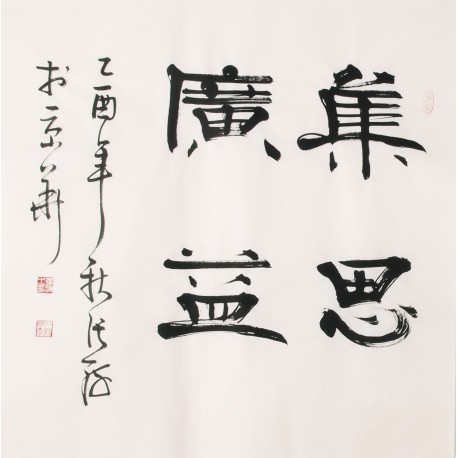 集思
廣益
乙酉年秋
於京華